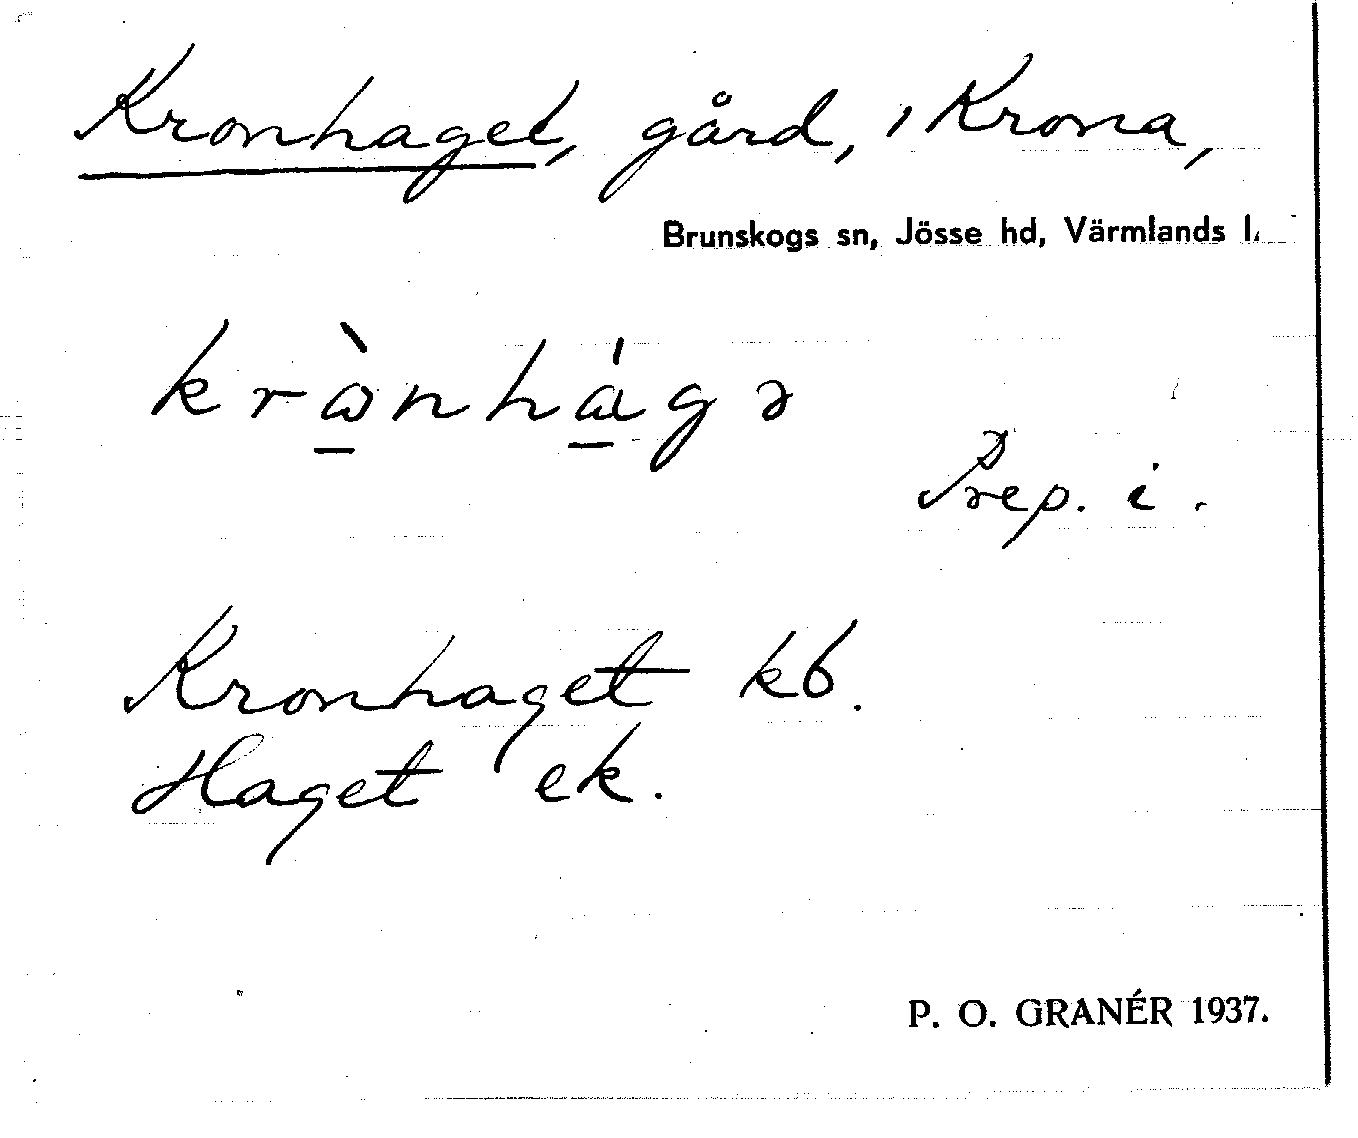 Kronhaget, gård, i Krona,
Brunskogs sn, Jösse hd, Värmlands l.
Prep. i.
Kronhaget kb.
Haget ek.
P. O. GRANÉR 1937.